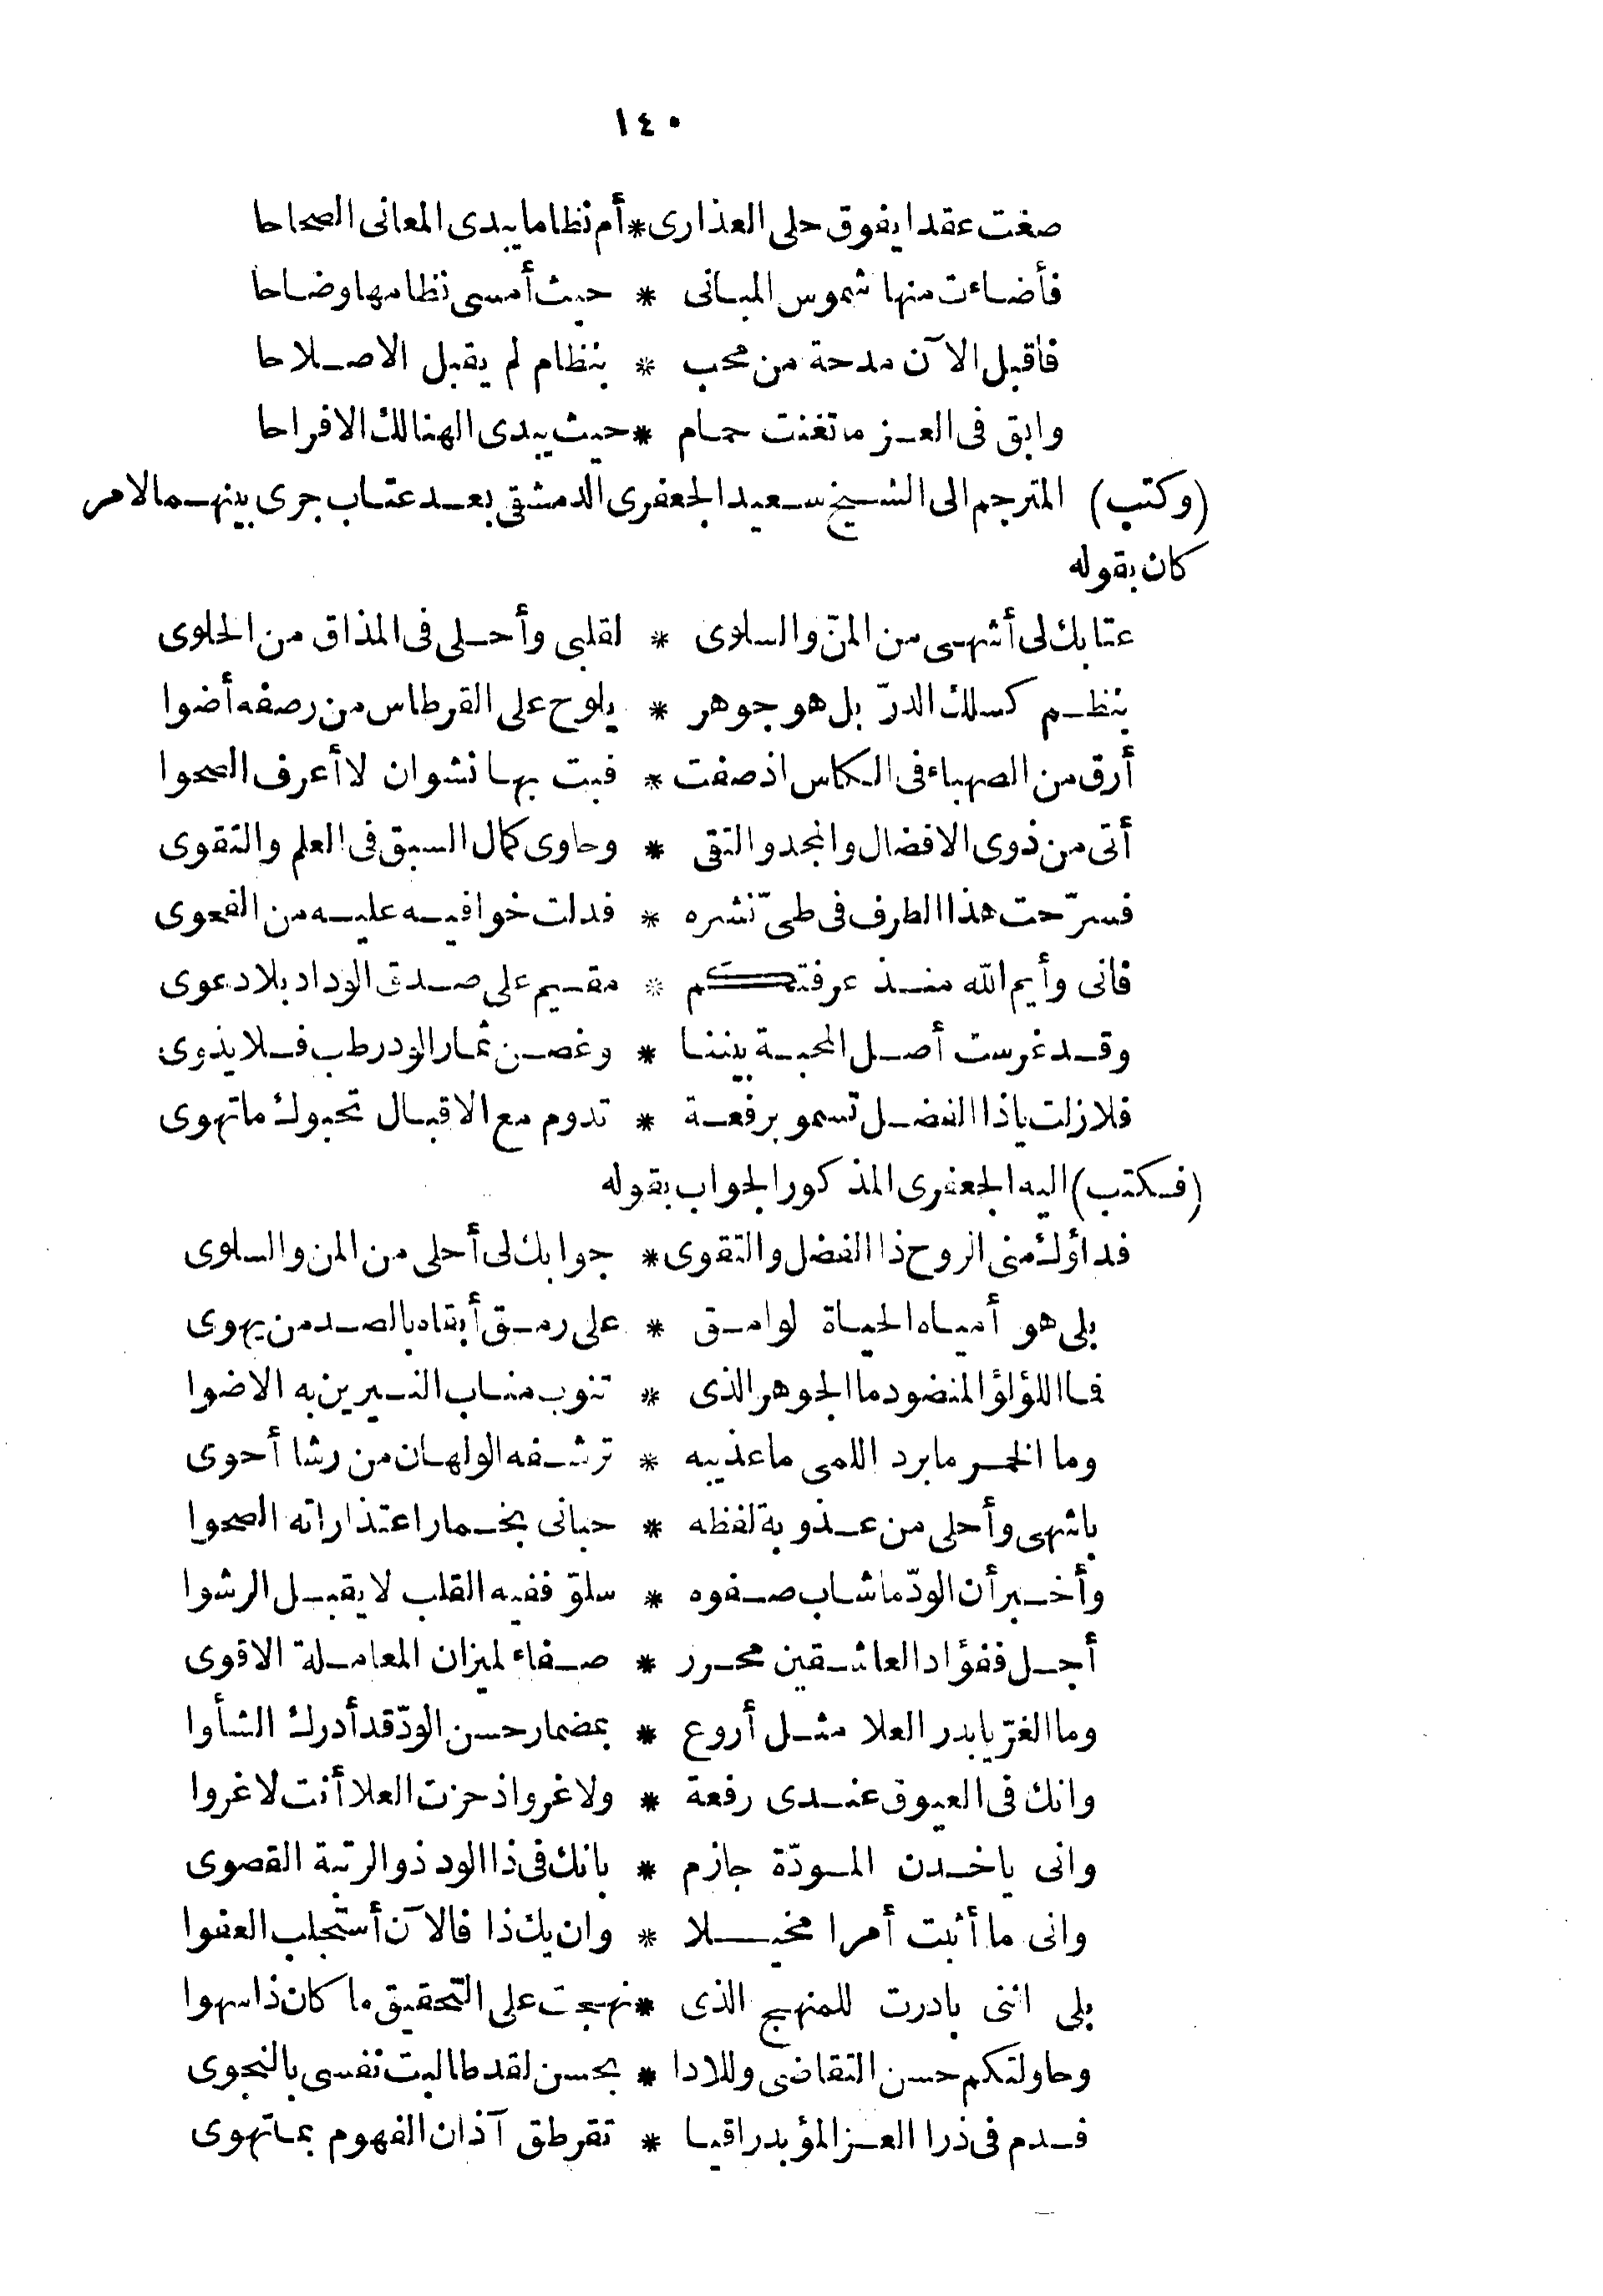 ١٤٠
صغت عقدا يفوق حلى العذارى * أم نظاما يبدى المعانى الصحاحا
فأضاءت منها شموس المبانى * حيث أمسى نظامها وضاحا
فاقبل الآن مدحة من محب * بنظام لم يقبل الاصلاحا
وابق فى العز ما تغنت حمام * حيث يبدى الهنا لك الافراحا
(وكتب) المترجم الى الشيخ سعيد الجعفرى الدمشقى بعد عتاب جرى بينهما لامر
كان بقوله
عتابك لى أشهى من المنّ والسلوى * لقلبى وأحلى فى المذاق من الحلوى
بنظم كسلك الدرّ بل هو جوهر * يلوح على القرطاس من رصفه أضوا
أرق من الصهباء فى الكاس اذ صفت * فبت بها نشوان لا أعرف الصحوا
أتى من ذوى الافضال والمجد والتقى * وحاوى كمال السبق فى العلم والتقوى
فسرّحت هذا الطرف فى طىّ نشره * فدلت خوافيه عليه من الفحوى
فانى وأيم الله منذ عرفتكم * مقيم على صدق الوداد بلا دعوى
وقد غرست أصل المحبة بيننا * وغصن ثمار الود رطب فلا يذوى
فلا زلت ياذا الفضل تسمو برفعة * تدوم مع الاقبال تحبوك ما تهوى
(فكتب) اليه الجعفرى المذكور الجواب بقوله
فداؤك منى الروح ذا الفضل والتقوى * جوابك لى أحلى من المن والسلوى
بلى هو أمياه الحياة لوامق * على رمق أبقاه بالصد من يهوى
فما اللؤلؤ المنضود ما الجوهر الذى * تنوب مناب النيرين به الاضوا
وما الخمر ما برد اللمى ما عذيبه * ترشفه الولهان من رشا أحوى
باشهى وأحلى من عذوبة لفظه * حبانى بخمار اعتذاراته الصحوا
وأخبر أن الودّ ما شاب صفوه * سلوّ ففيه القلب لا يقبل الرشوا
أجل ففؤاد العاشقين محرر * صفاء لميزان المعاملة الاقوى
وما الغرّ يا بدر العلا مثل أروع * بمضمار حسن الودّ قد أدرك الشأوا
وانك فى العيوق عندى رفعة * ولا غرو اذ حزت العلا أنت لا غروا
وانى يا خدن المودّة جازم * بانك فى ذا الود ذو الرتبة القصوى
وانى ما أثبت أمرا مخيلا * وان يك ذا فالآن أستجلب العفوا
بلى اننى بادرت للمنهج الذى * نهجت على التحقيق ما كان ذا سهوا
وحاولتكم حسن التقاضى وللادا * بحسن لقد طالبت نفسى بالنجوى
فدم فى ذرا العز المؤبد راقيا * تقرطق آذان الفهوم بما تهوى